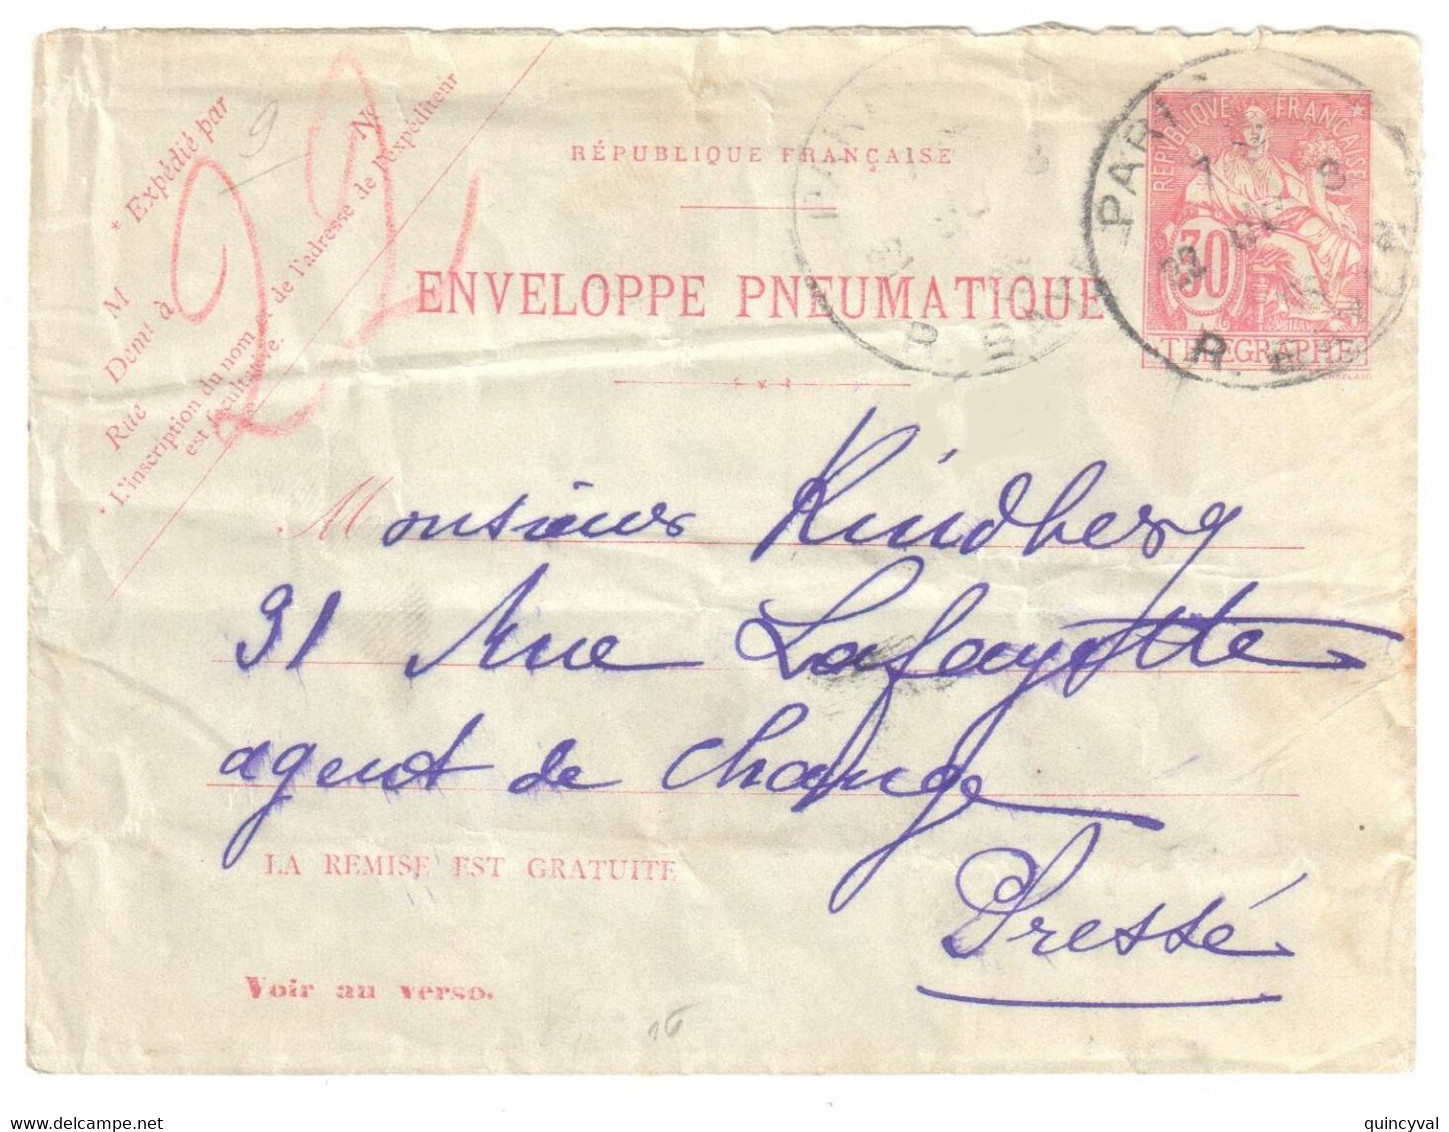 * Expédié par
M
No
Demt à
Rue
* L'inscription du nom et de l'adresse de l'expéditeur
est facultative.
9
22
RÉPUBLIQUE FRANÇAISE
ENVELOPPE PNEUMATIQUE
REPVBLIQVE FRANÇAISE
30
TELEGRAPHE
PARIS
22
R.
PARIS
R.
Monsieur Kindberg
31 Rue Lafayette
agent de change
Pressé
LA REMISE EST GRATUITE
Voir au verso.
16
quincyval